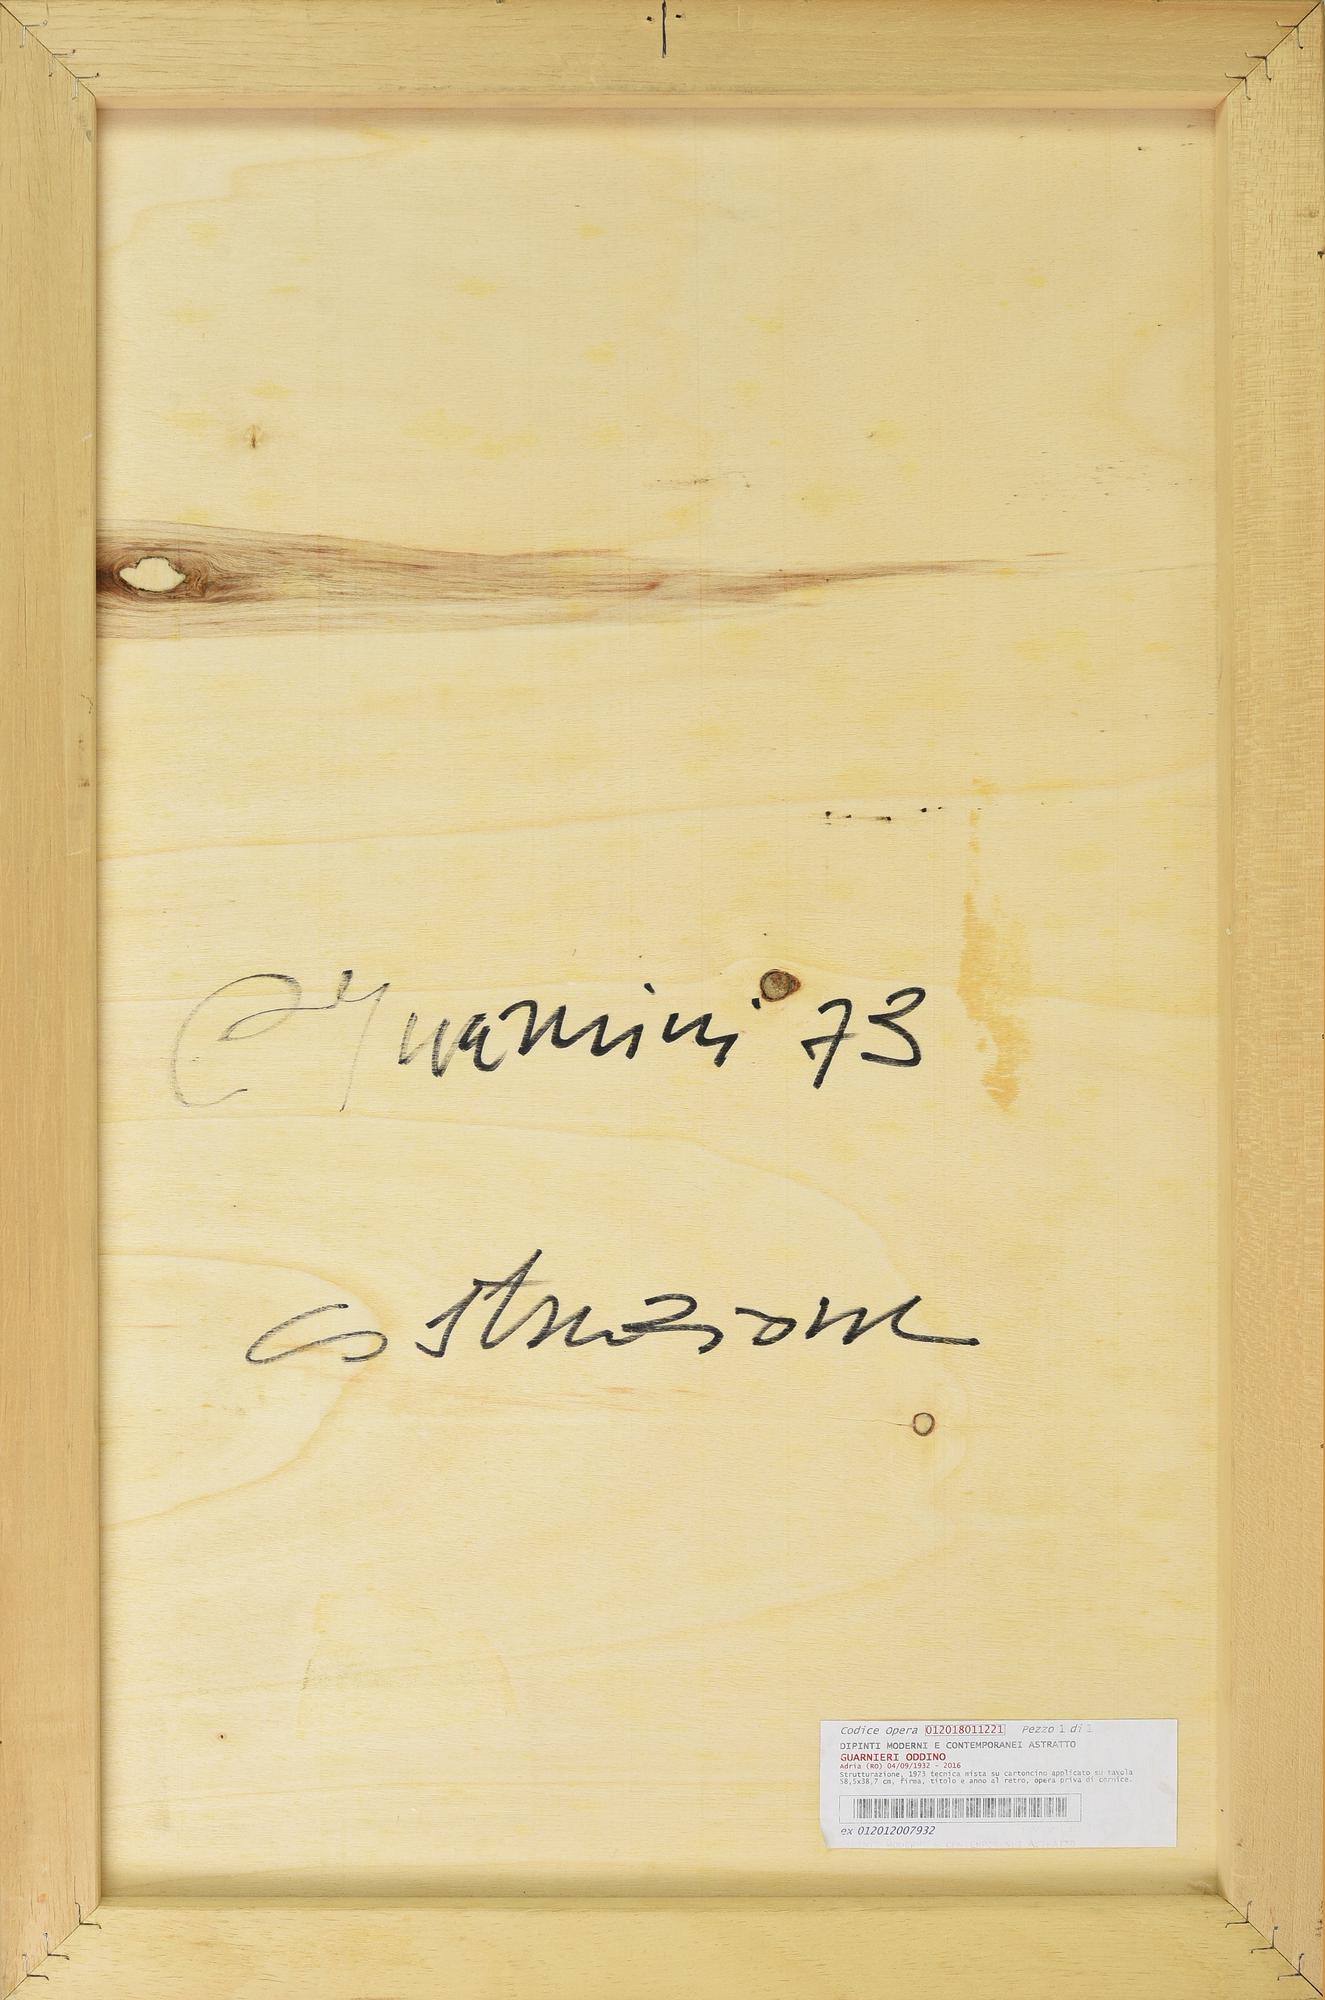 O Guarnieri 73
Costruzione
Codice Opera 012018011221 Pezzo 1 di 1
DIPINTI MODERNI E CONTEMPORANEI ASTRATTO
GUARNIERI ODDINO
Adria (RO) 04/09/1932 - 2016
Strutturazione, 1973 tecnica mista su cartoncino applicato su tavola
58,5x38,7 cm, firma, titolo e anno al retro, opera priva di cornice.
ex 012012007932